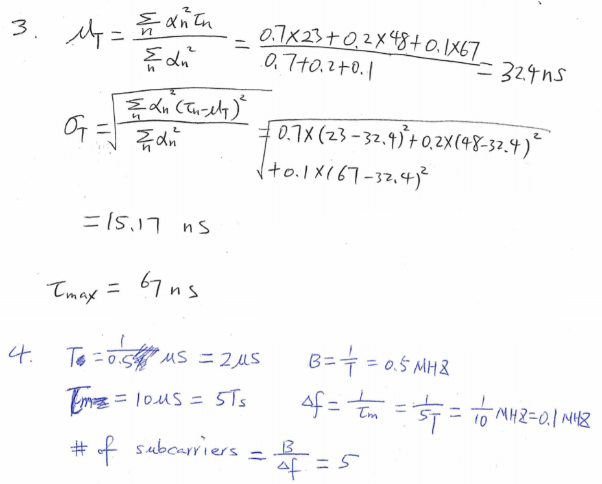 3. μ_T = Σ_n α_n² τ_n / Σ_n α_n² = (0.7×23+0.2×48+0.1×67) / (0.7+0.2+0.1) = 32.4 ns
σ_T = √(Σ_n α_n² (τ_n-μ_T)² / Σ_n α_n²) = √(0.7×(23-32.4)²+0.2×(48-32.4)²
+0.1×(67-32.4)²)
=15.17 ns
τ_max = 67 ns
4. T = 1/0.5 μs = 2μs B = 1/T = 0.5 MHz
= 10μs = 5Ts Δf = 1/τ_m = 1/5T = 1/10 MHz=0.1 MHz
# of subcarriers = B/Δf = 5